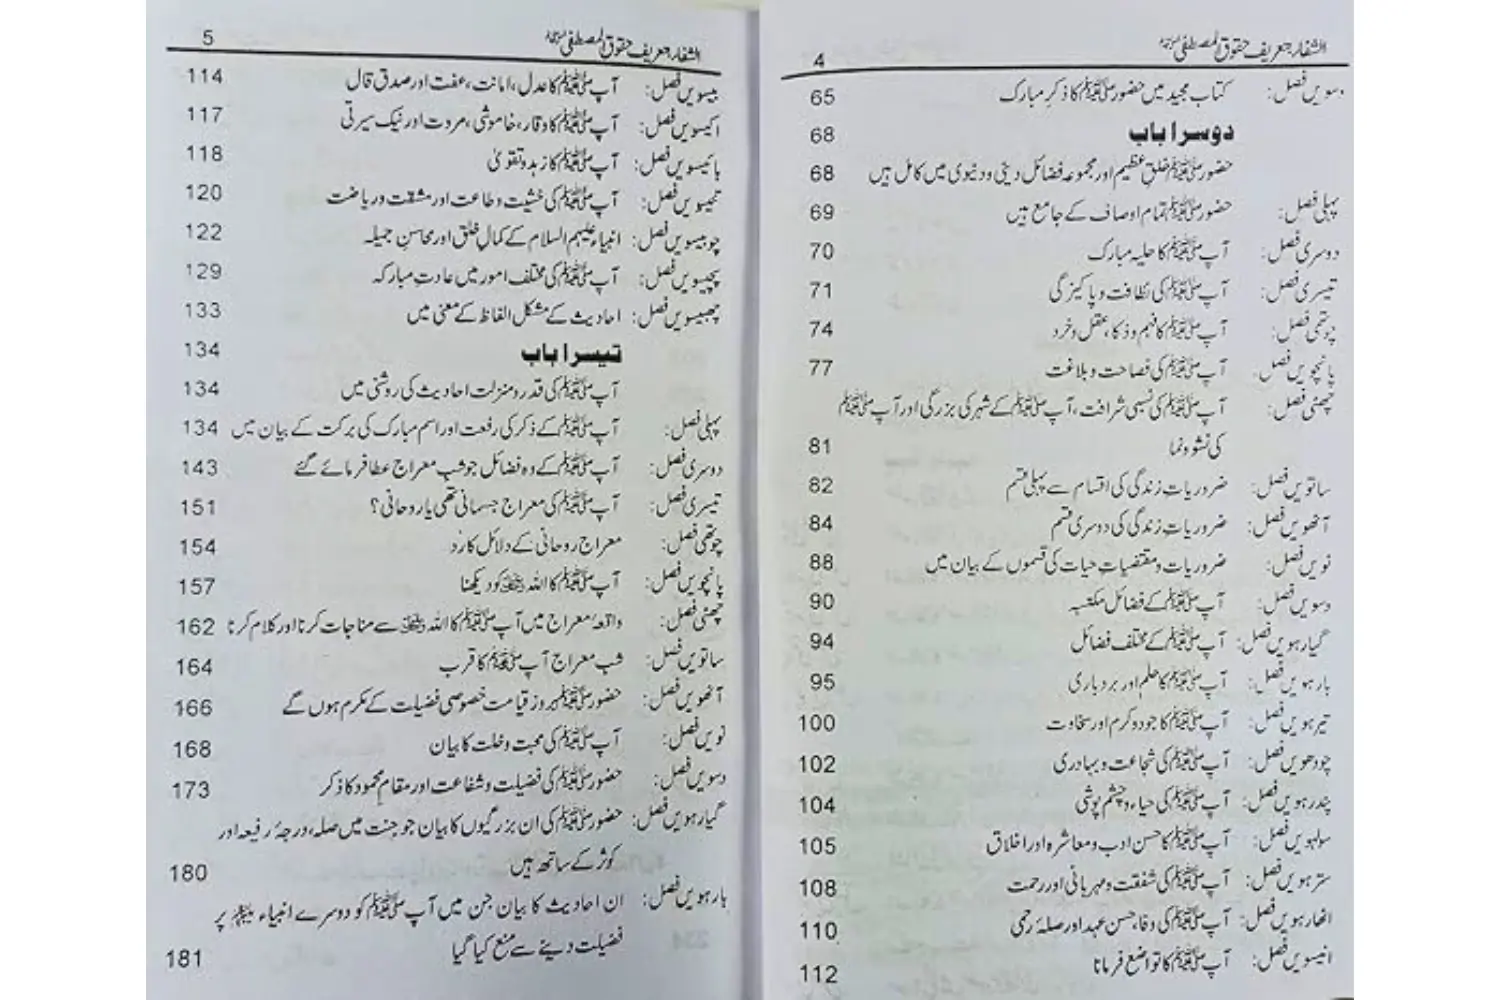 الشفاء بتعریف حقوق المصطفیٰ ﷺ 4
دسویں فصل: کتاب مجید میں حضور ﷺ کا ذکرِ مبارک 65
دوسرا باب 68
حضور ﷺ خلقِ عظیم اور مجموعہ فضائل دینی و دنیوی میں کامل ہیں 68
پہلی فصل: حضور ﷺ تمام اوصاف کے جامع ہیں 69
دوسری فصل: آپ ﷺ کا حلیہ مبارک 70
تیسری فصل: آپ ﷺ کی نظافت و پاکیزگی 71
چوتھی فصل: آپ ﷺ کا فہم و ذکا، عقل و خرد 74
پانچویں فصل: آپ ﷺ کی فصاحت و بلاغت 77
چھٹی فصل: آپ ﷺ کی نسبی شرافت، آپ ﷺ کے شہر کی بزرگی اور آپ ﷺ
کی نشوونما 81
ساتویں فصل: ضروریاتِ زندگی کی اقسام سے پہلی قسم 82
آٹھویں فصل: ضروریاتِ زندگی کی دوسری قسم 84
نویں فصل: ضروریات و مقتضیاتِ حیات کی قسموں کے بیان میں 88
دسویں فصل: آپ ﷺ کے فضائل مکتسبہ 90
گیارہویں فصل: آپ ﷺ کے مختلف فضائل 94
بارہویں فصل: آپ ﷺ کا حلم اور بردباری 95
تیرہویں فصل: آپ ﷺ کا جود و کرم اور سخاوت 100
چودھویں فصل: آپ ﷺ کی شجاعت و بہادری 102
پندرہویں فصل: آپ ﷺ کی حیاء و چشم پوشی 104
سولہویں فصل: آپ ﷺ کا حسن ادب و معاشرہ اور اخلاق 105
سترہویں فصل: آپ ﷺ کی شفقت و مہربانی اور رحمت 108
اٹھارہویں فصل: آپ ﷺ کی وفا، حسن عہد اور صلۂ رحمی 110
انیسویں فصل: آپ ﷺ کا تواضع فرمانا 112
الشفاء بتعریف حقوق المصطفیٰ ﷺ 5
بیسویں فصل: آپ ﷺ کا عدل، امانت، عفت اور صدق قال 114
اکیسویں فصل: آپ ﷺ کا وقار، خاموشی، مروت اور نیک سیرتی 117
بائیسویں فصل: آپ ﷺ کا زہد و تقویٰ 118
تئیسویں فصل: آپ ﷺ کی خشیت و طاعت اور مشقت و ریاضت 120
چوبیسویں فصل: انبیاء علیہم السلام کے کمالِ خلق اور محاسنِ جمیلہ 122
پچیسویں فصل: آپ ﷺ کی مختلف امور میں عادتِ مبارکہ 129
چھبیسویں فصل: احادیث کے مشکل الفاظ کے معنی میں 133
تیسرا باب 134
آپ ﷺ کی قدر و منزلت احادیث کی روشنی میں 134
پہلی فصل: آپ ﷺ کے ذکر کی رفعت اور اسم مبارک کی برکت کے بیان میں 134
دوسری فصل: آپ ﷺ کے وہ فضائل جو شبِ معراج عطا فرمائے گئے 143
تیسری فصل: آپ ﷺ کی معراج جسمانی تھی یا روحانی؟ 151
چوتھی فصل: معراج روحانی کے دلائل کا رَد 154
پانچویں فصل: آپ ﷺ کا اللہ ﷻ کو دیکھنا 157
چھٹی فصل: واقعۂ معراج میں آپ ﷺ کا اللہ ﷻ سے مناجات کرنا اور کلام کرنا 162
ساتویں فصل: شب معراج آپ ﷺ کا قرب 164
آٹھویں فصل: حضور ﷺ بروز قیامت خصوصی فضیلت کے مکرم ہوں گے 166
نویں فصل: آپ ﷺ کی محبت و خلت کا بیان 168
دسویں فصل: حضور ﷺ کی فضیلت و شفاعت اور مقامِ محمود کا ذکر 173
گیارہویں فصل: حضور ﷺ کی ان بزرگیوں کا بیان جو جنت میں صلہ، درجۂ رفیعہ اور
کوثر کے ساتھ ہیں 180
بارہویں فصل: ان احادیث کا بیان جن میں آپ ﷺ کو دوسرے انبیاء پر
فضیلت دینے سے منع کیا گیا 181